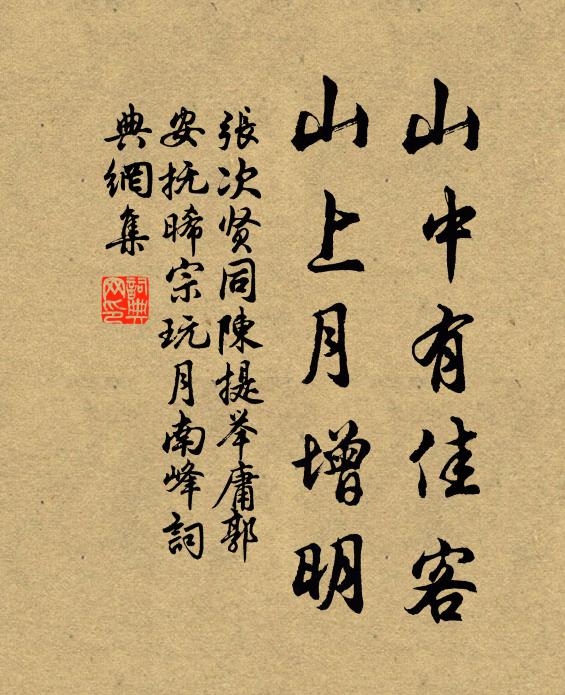 山中有佳客
山上月增明
張次贤同陳提举庸郭
安抚晞宗玩月南峰詞
典網集
詞典網印